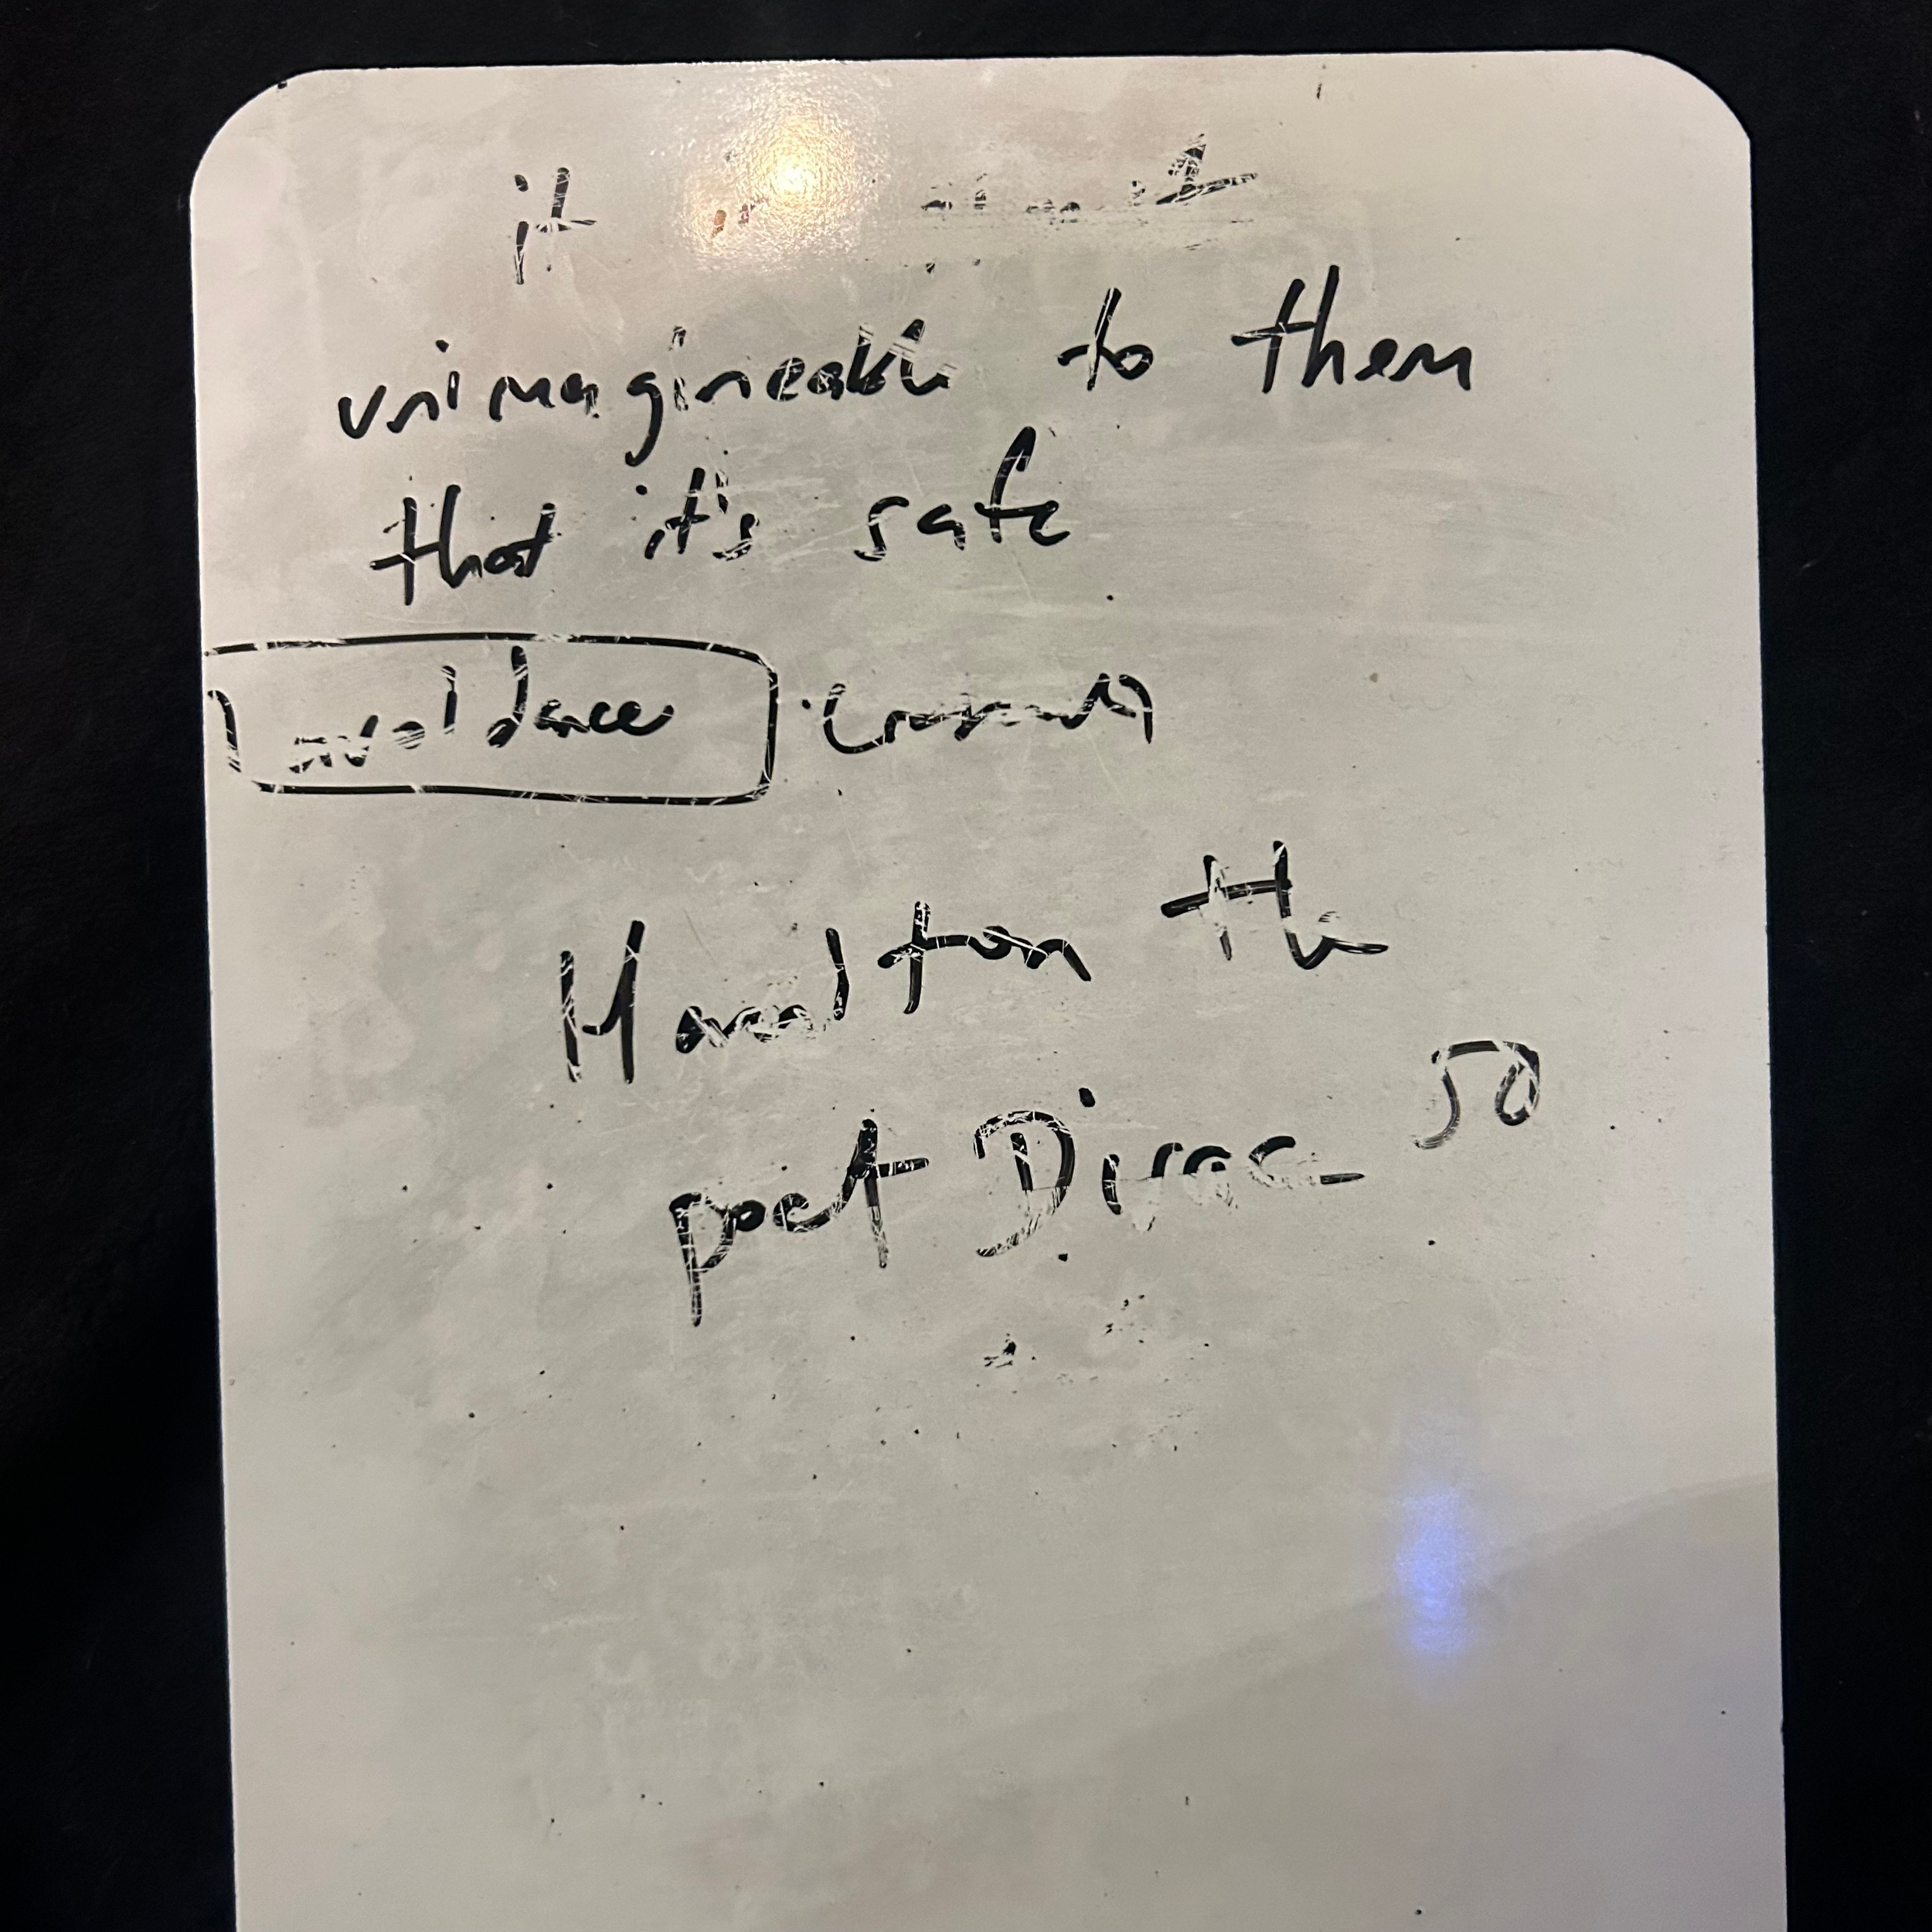 it is almost
unimagineable to them
that it's safe
avoidance
Hamilton the
poet Dirac 50